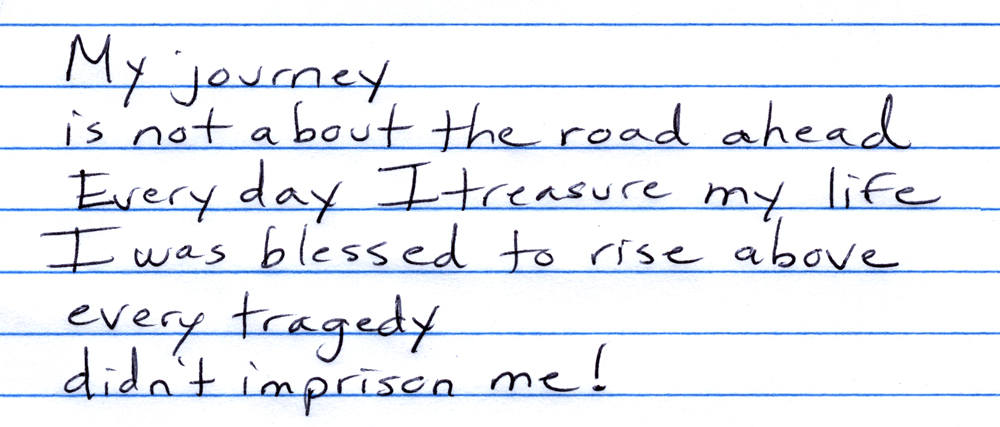 My journey
is not about the road ahead
Every day I treasure my life
I was blessed to rise above
every tragedy
didn't imprison me!